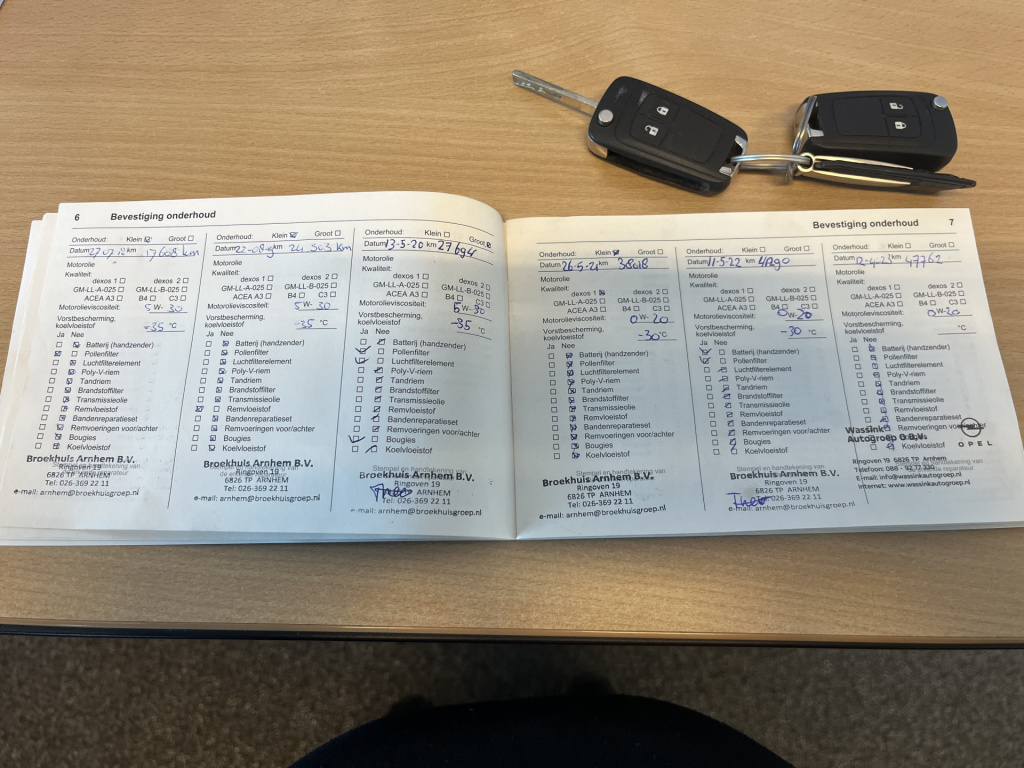 6 Bevestiging onderhoud
Onderhoud: Klein Groot
Datum 27-07-18 km 17608 km
Motorolie
Kwaliteit:
dexos 1 dexos 2
GM-LL-A-025 GM-LL-B-025
ACEA A3 B4 C3
Motorolieviscositeit: 5W-30
Vorstbescherming,
koelvloeistof -35 °C
Ja Nee
Batterij (handzender)
Pollenfilter
Luchtfilterelement
Poly-V-riem
Tandriem
Brandstoffilter
Transmissieolie
Remvloeistof
Bandenreparatieset
Remvoeringen voor/achter
Bougies
Koelvloeistof
Broekhuis Arnhem B.V.
Ringoven 19
6826 TP ARNHEM
Tel: 026-369 22 11
e-mail: arnhem@broekhuisgroep.nl
Onderhoud: Klein Groot
Datum 22-08-9 km 24 503 km
Motorolie
Kwaliteit:
dexos 1 dexos 2
GM-LL-A-025 GM-LL-B-025
ACEA A3 B4 C3
Motorolieviscositeit: 5W-30
Vorstbescherming,
koelvloeistof -35 °C
Ja Nee
Batterij (handzender)
Pollenfilter
Luchtfilterelement
Poly-V-riem
Tandriem
Brandstoffilter
Transmissieolie
Remvloeistof
Bandenreparatieset
Remvoeringen voor/achter
Bougies
Koelvloeistof
Broekhuis Arnhem B.V.
Ringoven 19
6826 TP ARNHEM
Tel: 026-369 22 11
e-mail: arnhem@broekhuisgroep.nl
Onderhoud: Klein Groot
Datum 13-5-20 km 27694
Motorolie
Kwaliteit:
dexos 1 dexos 2
GM-LL-A-025 GM-LL-B-025
ACEA A3 B4 C3
Motorolieviscositeit: 5W-30
Vorstbescherming,
koelvloeistof -35 °C
Ja Nee
Batterij (handzender)
Pollenfilter
Luchtfilterelement
Poly-V-riem
Tandriem
Brandstoffilter
Transmissieolie
Remvloeistof
Bandenreparatieset
Remvoeringen voor/achter
Bougies
Koelvloeistof
Stempel en handtekening van
Broekhuis Arnhem B.V.
Ringoven 19
Theo ARNHEM
Tel: 026-369 22 11
e-mail: arnhem@broekhuisgroep.nl
Bevestiging onderhoud 7
Onderhoud: Klein Groot
Datum 26-5-21 km 38018
Motorolie
Kwaliteit:
dexos 1 dexos 2
GM-LL-A-025 GM-LL-B-025
ACEA A3 B4 C3
Motorolieviscositeit: 0W-20
Vorstbescherming,
koelvloeistof -30°C
Ja Nee
Batterij (handzender)
Pollenfilter
Luchtfilterelement
Poly-V-riem
Tandriem
Brandstoffilter
Transmissieolie
Remvloeistof
Bandenreparatieset
Remvoeringen voor/achter
Bougies
Koelvloeistof
Broekhuis Arnhem B.V.
Ringoven 19
6826 TP ARNHEM
Tel: 026-369 22 11
e-mail: arnhem@broekhuisgroep.nl
Onderhoud: Klein Groot
Datum 11-5-22 km
Motorolie
Kwaliteit:
dexos 1 dexos 2
GM-LL-A-025 GM-LL-B-025
ACEA A3 B4 C3
Motorolieviscositeit: 0W-20
Vorstbescherming,
koelvloeistof -30 °C
Ja Nee
Batterij (handzender)
Pollenfilter
Luchtfilterelement
Poly-V-riem
Tandriem
Brandstoffilter
Transmissieolie
Remvloeistof
Bandenreparatieset
Remvoeringen voor/achter
Bougies
Koelvloeistof
Stempel en handtekening van
Broekhuis Arnhem B.V.
Ringoven 19
6826 TP ARNHEM
Theo 026-369 22 11
e-mail: arnhem@broekhuisgroep.nl
Onderhoud: Klein Groot
Datum 12-4-23 km 47762
Motorolie
Kwaliteit:
dexos 1 dexos 2
GM-LL-A-025 GM-LL-B-025
ACEA A3 B4 C3
Motorolieviscositeit: 0W-20
Vorstbescherming,
koelvloeistof °C
Ja Nee
Batterij (handzender)
Pollenfilter
Luchtfilterelement
Poly-V-riem
Tandriem
Brandstoffilter
Transmissieolie
Remvloeistof
Bandenreparatieset
Remvoeringen voor/achter
Wassink
Autogroep
OPEL
Ringoven 19 6826 TP Arnhem
Telefoon: 088 -
E-mail: info@wassinkautogroep.nl
Internet: www.wassinkautogroep.nl